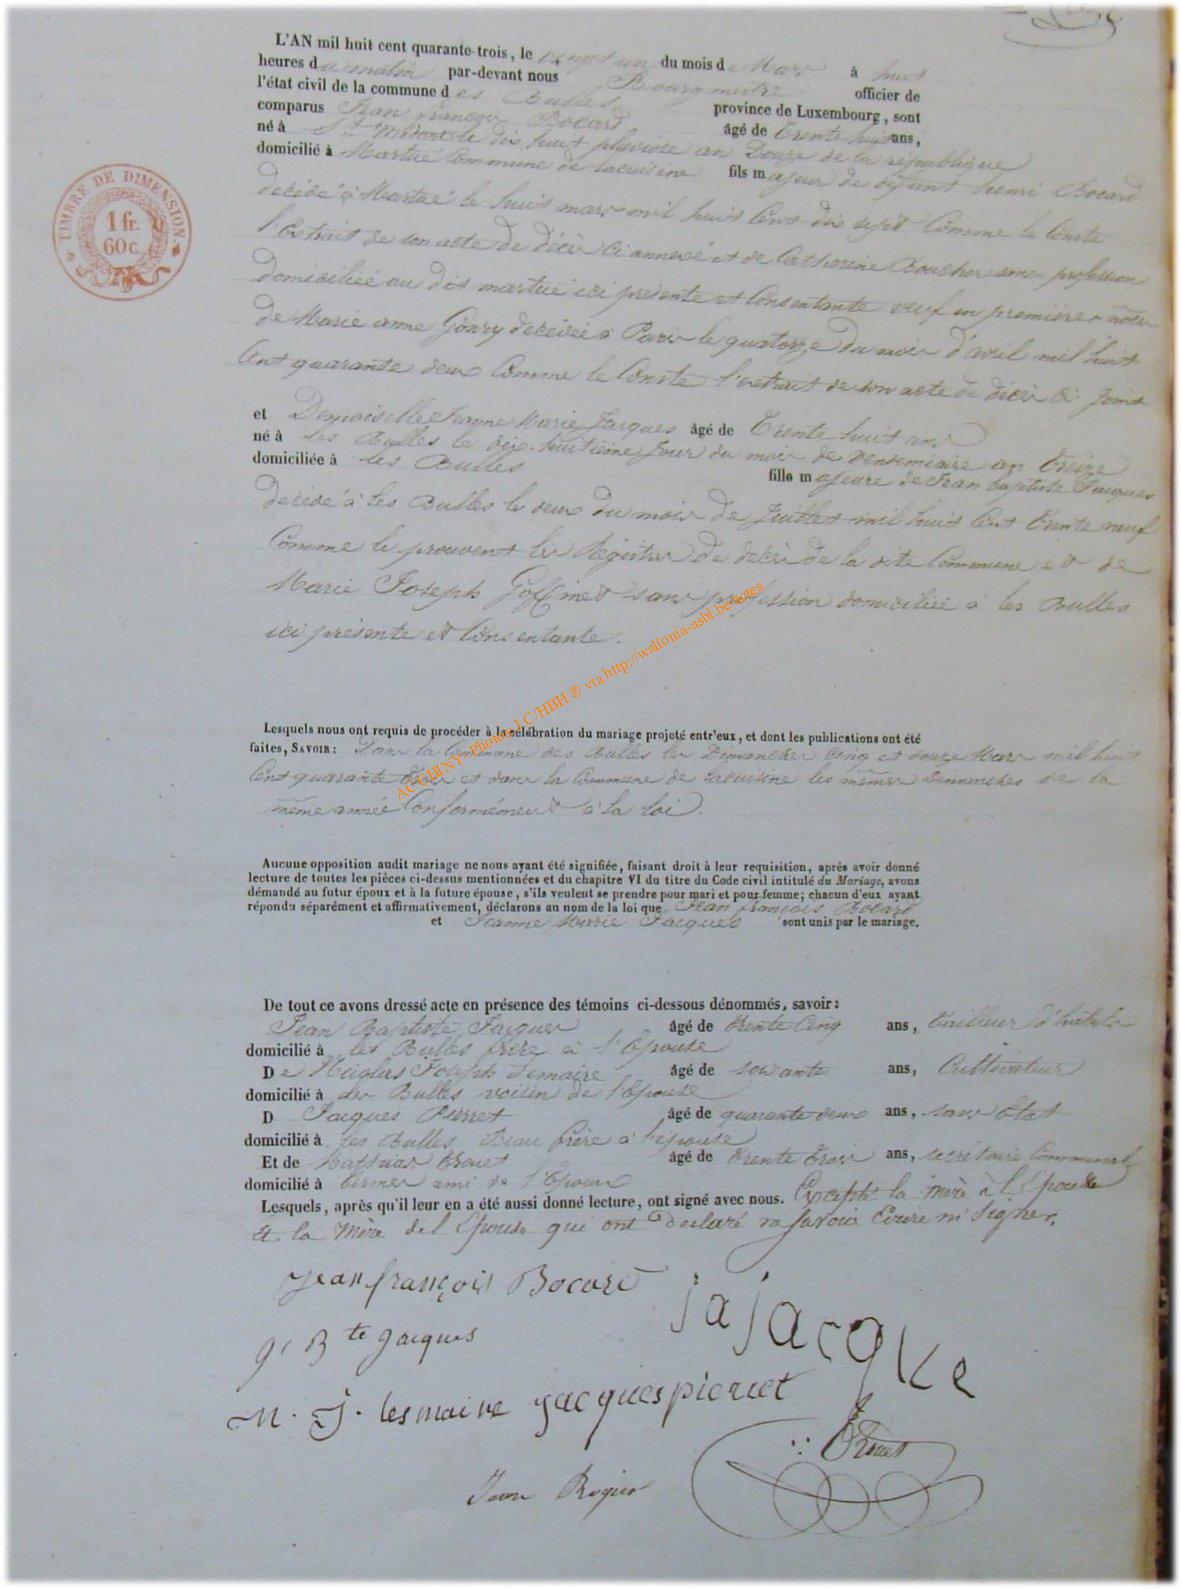 L'AN mil huit cent quarante-trois, le vingt un du mois de Mars à huit
heures du matin par-devant nous Bourgmestre officier de
l'état civil de la commune des Bulles province de Luxembourg, sont
comparus Jean françois Bocard âgé de trente huit ans,
né à St Médard le dix huit pluviose an Douze de la république
domicilié à Martué Commune de Lacuisine fils majeur de défunt henri Bocard
décédé à Martué le huit mars mil huit Cent dix sept Comme le Conste
l'Extrait de son acte de décès Ci annexé et de Catherine Boucher sans profession
domiciliée au dit martué ici présente et Consentante veuf en premières
de Marie anne Gonry décédée à Paris le quatorze du mois d'avril mil huit
Cent quarante deux Comme le Conste l'extrait de son acte de décès Ci joint
et Demoiselle Jeanne Marie Jacques âgé de Trente huit ans
né à les Bulles le dix huitième jour du mois de vendemiaire an treize
domiciliée à les Bulles fille majeure de Jean baptiste Jacques
décédé à les Bulles le deux du mois de Juillet mil huit Cent trente neuf
Comme le prouvent les Régistres de décès de la dite Commune et de
Marie Joseph Goffinet sans profession domiciliée à les Bulles
ici présente et Consentante.
Lesquels nous ont requis de procéder à la célébration du mariage projeté entr'eux, et dont les publications ont été
faites, SAVOIR: Dans la Commune des Bulles les Dimanches Cinq et douze Mars mil huit
Cent quarante trois et dans la Commune de Lacuisine les mêmes Dimanches de la
même année Conformément à la loi.
ACGHINY - Photos J.C /HBH ® via http://wallonia-asbl.be/notes
Aucune opposition audit mariage ne nous ayant été signifiée, faisant droit à leur requisition, après avoir donné
lecture de toutes les pièces ci-dessus mentionnées et du chapitre VI du titre du Code civil intitulé du Mariage, avons
démandé au futur époux et à la future épouse, s'ils veulent se prendre pour mari et pour femme; chacun d'eux ayant
répondu séparément et affirmativement, déclarons au nom de la loi que Jean françois Bocard
et Jeanne Marie Jacques sont unis par le mariage.
De tout ce avons dressé acte en présence des témoins ci-dessous dénommés, savoir:
Jean Baptiste Jacques âgé de trente Cinq ans, tailleur d'habits
domicilié à les Bulles frère à l'Epouse
De Nicolas Joseph Lemaire âgé de soixante ans, Cultivateur
domicilié à des Bulles voisin de l'Epouse
D Jacques Pierret âgé de quarante deux ans, sans Etat
domicilié à les Bulles Beau frère à l'epouse
Et de Mathias Trouet âgé de trente trois ans, secrétaire Communal
domicilié à Termes ami de l'Epoux
Lesquels, après qu'il leur en a été aussi donné lecture, ont signé avec nous. Excepté la mère à l'Epouse
et la mère de l'Epouse qui ont déclaré ne savoir Ecrire ni signer.
jean françois Bocard
ja jacque
j. Bte jacques
N. J. lesmaire jacques pierret
Trouet
TIMBRE DE DIMENSION
1 fr.
60 c.